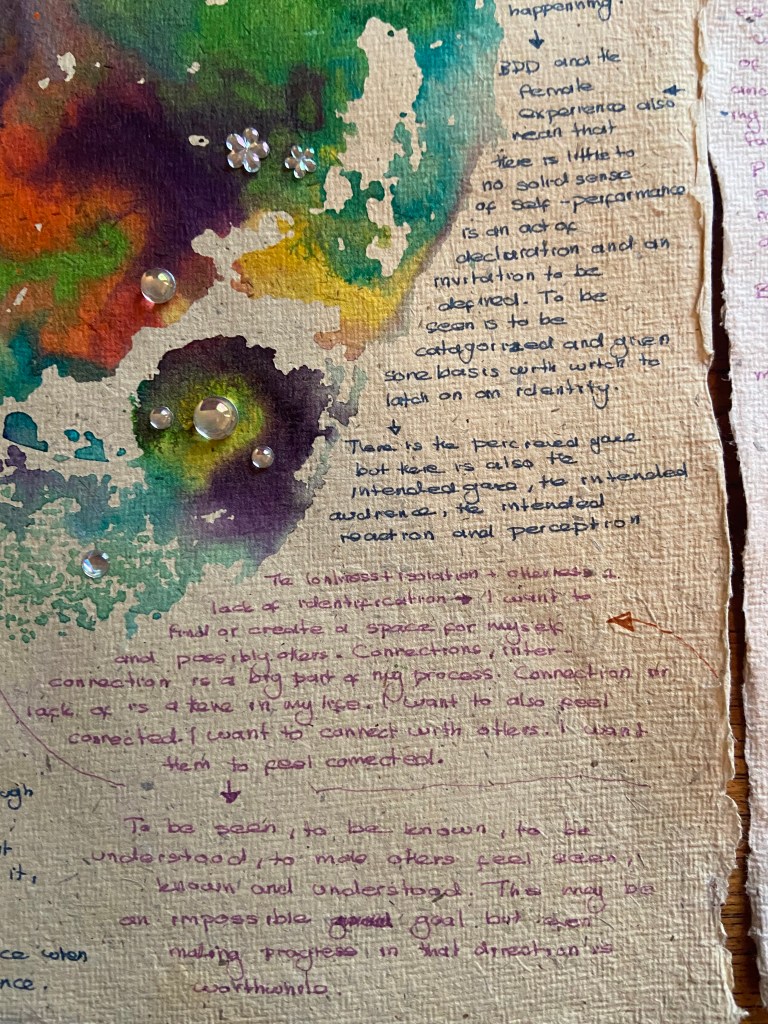 happening.
↓
BDD and the
female
experience also
mean that
there is little to
no solid sense
of self-performance
is an act of
declaration and an
invitation to be
defined. To be
seen is to be
catagorized and given
some basis with wich to
latch on an identity.
↓
There is the percieved gaze
but there is also the
intended gaze, the intended
audience, the intended
reaction and perception
The lonliness + isolation + otherness +
lack of identification → I want to
find or create a space for myself
and possibly others. Connections, inter-
connection is a big part of my process. Connection or
lack of is a theme in my life. I want to also feel
connected. I want to connect with others. I want
them to feel connected.
↓
To be seen, to be known, to be
understood, to make others feel seen,
known and understood. This may be
an impossible goal but even
making progress in that direction is
worthwhile.
ugh
it
it,
ce when
nce.
of
ring